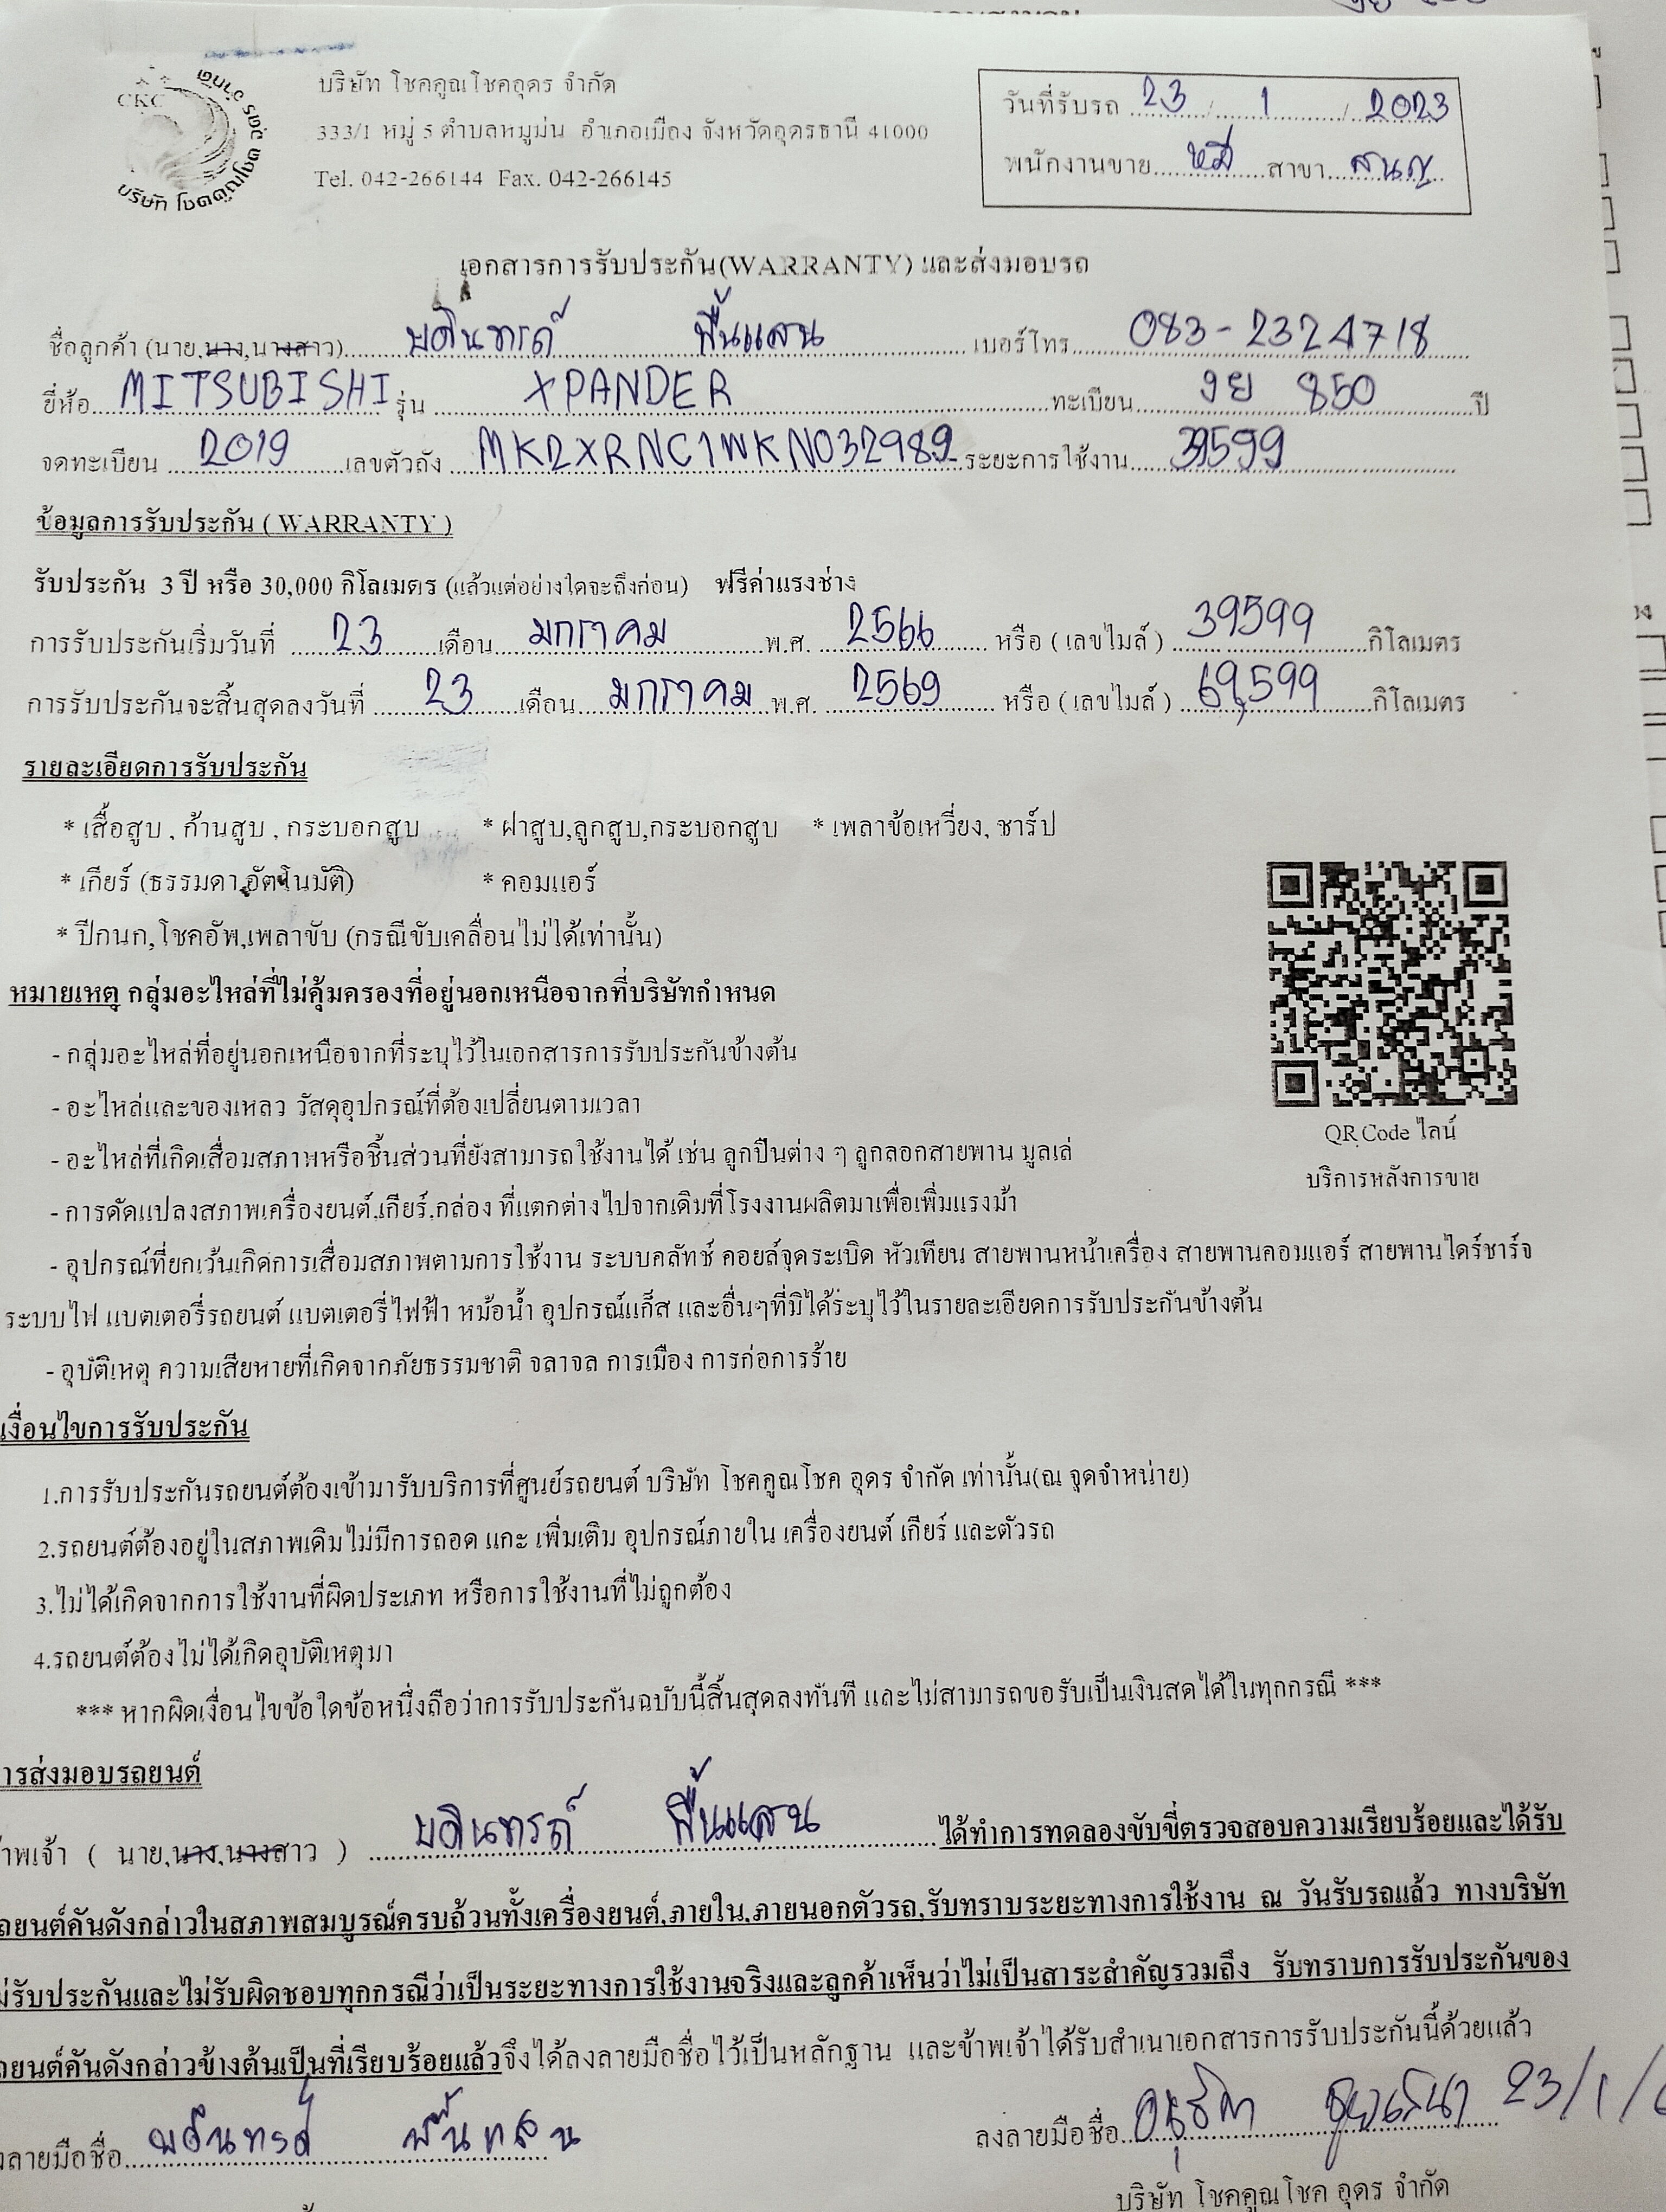 CKC
บริษัท โชคคูณโชค อุดร จำกัด
บริษัท โชคคูณโชคอุดร จำกัด
333/1 หมู่ 5 ตำบลหมูม่น อำเภอเมือง จังหวัดอุดรธานี 41000
Tel. 042-266144 Fax. 042-266145
วันที่รับรถ 23 / 1 / 2023
พนักงานขาย หมี สาขา
เอกสารการรับประกัน(WARRANTY) และส่งมอบรถ
ชื่อลูกค้า (นาย,นาง,นางสาว) บดินทรถ์ พื้นแสน เบอร์โทร 083-2324718
ยี่ห้อ MITSUBISHI รุ่น XPANDER ทะเบียน งย 850 ปี
จดทะเบียน 2019 เลขตัวถัง MK2XRNC1WKN032989 ระยะการใช้งาน 39599
ข้อมูลการรับประกัน ( WARRANTY )
รับประกัน 3 ปี หรือ 30,000 กิโลเมตร (แล้วแต่อย่างใดจะถึงก่อน) ฟรีค่าแรงช่าง
การรับประกันเริ่มวันที่ 23 เดือน มกราคม พ.ศ. 2566 หรือ ( เลขไมล์ ) 39599 กิโลเมตร
การรับประกันจะสิ้นสุดลงวันที่ 23 เดือน มกราคม พ.ศ. 2569 หรือ ( เลขไมล์ ) 69,599 กิโลเมตร
รายละเอียดการรับประกัน
* เสื้อสูบ , ก้านสูบ , กระบอกสูบ * ฝาสูบ,ลูกสูบ,กระบอกสูบ * เพลาข้อเหวี่ยง, ชาร์ป
* เกียร์ (ธรรมดา,อัตโนมัติ) * คอมแอร์
* ปีกนก,โชคอัพ,เพลาขับ (กรณีขับเคลื่อนไม่ได้เท่านั้น)
หมายเหตุ กลุ่มอะไหล่ที่ไม่คุ้มครองที่อยู่นอกเหนือจากที่บริษัทกำหนด
- กลุ่มอะไหล่ที่อยู่นอกเหนือจากที่ระบุไว้ในเอกสารการรับประกันข้างต้น
- อะไหล่และของเหลว วัสดุอุปกรณ์ที่ต้องเปลี่ยนตามเวลา
QR Code ไลน์
- อะไหล่ที่เกิดเสื่อมสภาพหรือชิ้นส่วนที่ยังสามารถใช้งานได้ เช่น ลูกปืนต่าง ๆ ลูกลอกสายพาน มูลเล่
บริการหลังการขาย
- การดัดแปลงสภาพเครื่องยนต์,เกียร์,กล่อง ที่แตกต่างไปจากเดิมที่โรงงานผลิตมาเพื่อเพิ่มแรงม้า
- อุปกรณ์ที่ยกเว้นเกิดการเสื่อมสภาพตามการใช้งาน ระบบคลัทช์ คอยล์จุดระเบิด หัวเทียน สายพานหน้าเครื่อง สายพานคอมแอร์ สายพานไดร์ชาร์จ
ระบบไฟ แบตเตอรี่รถยนต์ แบตเตอรี่ไฟฟ้า หม้อน้ำ อุปกรณ์แก็ส และอื่นๆที่มิได้ระบุไว้ในรายละเอียดการรับประกันข้างต้น
- อุบัติเหตุ ความเสียหายที่เกิดจากภัยธรรมชาติ จลาจล การเมือง การก่อการร้าย
เงื่อนไขการรับประกัน
1.การรับประกันรถยนต์ต้องเข้ามารับบริการที่ศูนย์รถยนต์ บริษัท โชคคูณโชค อุดร จำกัด เท่านั้น(ณ จุดจำหน่าย)
2.รถยนต์ต้องอยู่ในสภาพเดิมไม่มีการถอด แกะ เพิ่มเติม อุปกรณ์ภายใน เครื่องยนต์ เกียร์ และตัวรถ
3.ไม่ได้เกิดจากการใช้งานที่ผิดประเภท หรือการใช้งานที่ไม่ถูกต้อง
4.รถยนต์ต้องไม่ได้เกิดอุบัติเหตุมา
*** หากผิดเงื่อนไขข้อใดข้อหนึ่งถือว่าการรับประกันฉบับนี้สิ้นสุดลงทันที และไม่สามารถขอรับเป็นเงินสดได้ในทุกกรณี ***
ารส่งมอบรถยนต์
าพเจ้า ( นาย,นาง,นางสาว ) บดินทรถ์ พื้นแสน ได้ทำการทดลองขับขี่ตรวจสอบความเรียบร้อยและได้รับ
ถยนต์คันดังกล่าวในสภาพสมบูรณ์ครบถ้วนทั้งเครื่องยนต์,ภายใน,ภายนอกตัวรถ,รับทราบระยะทางการใช้งาน ณ วันรับรถแล้ว ทางบริษัท
ม่รับประกันและไม่รับผิดชอบทุกกรณีว่าเป็นระยะทางการใช้งานจริงและลูกค้าเห็นว่าไม่เป็นสาระสำคัญรวมถึง รับทราบการรับประกันของ
ถยนต์คันดังกล่าวข้างต้นเป็นที่เรียบร้อยแล้วจึงได้ลงลายมือชื่อไว้เป็นหลักฐาน และข้าพเจ้าได้รับสำเนาเอกสารการรับประกันนี้ด้วยแล้ว
งลายมือชื่อ บดินทรถ์ พื้นแสน ลงลายมือชื่อ 23/1/6
บริษัท โชคคูณโชค อุดร จำกัด